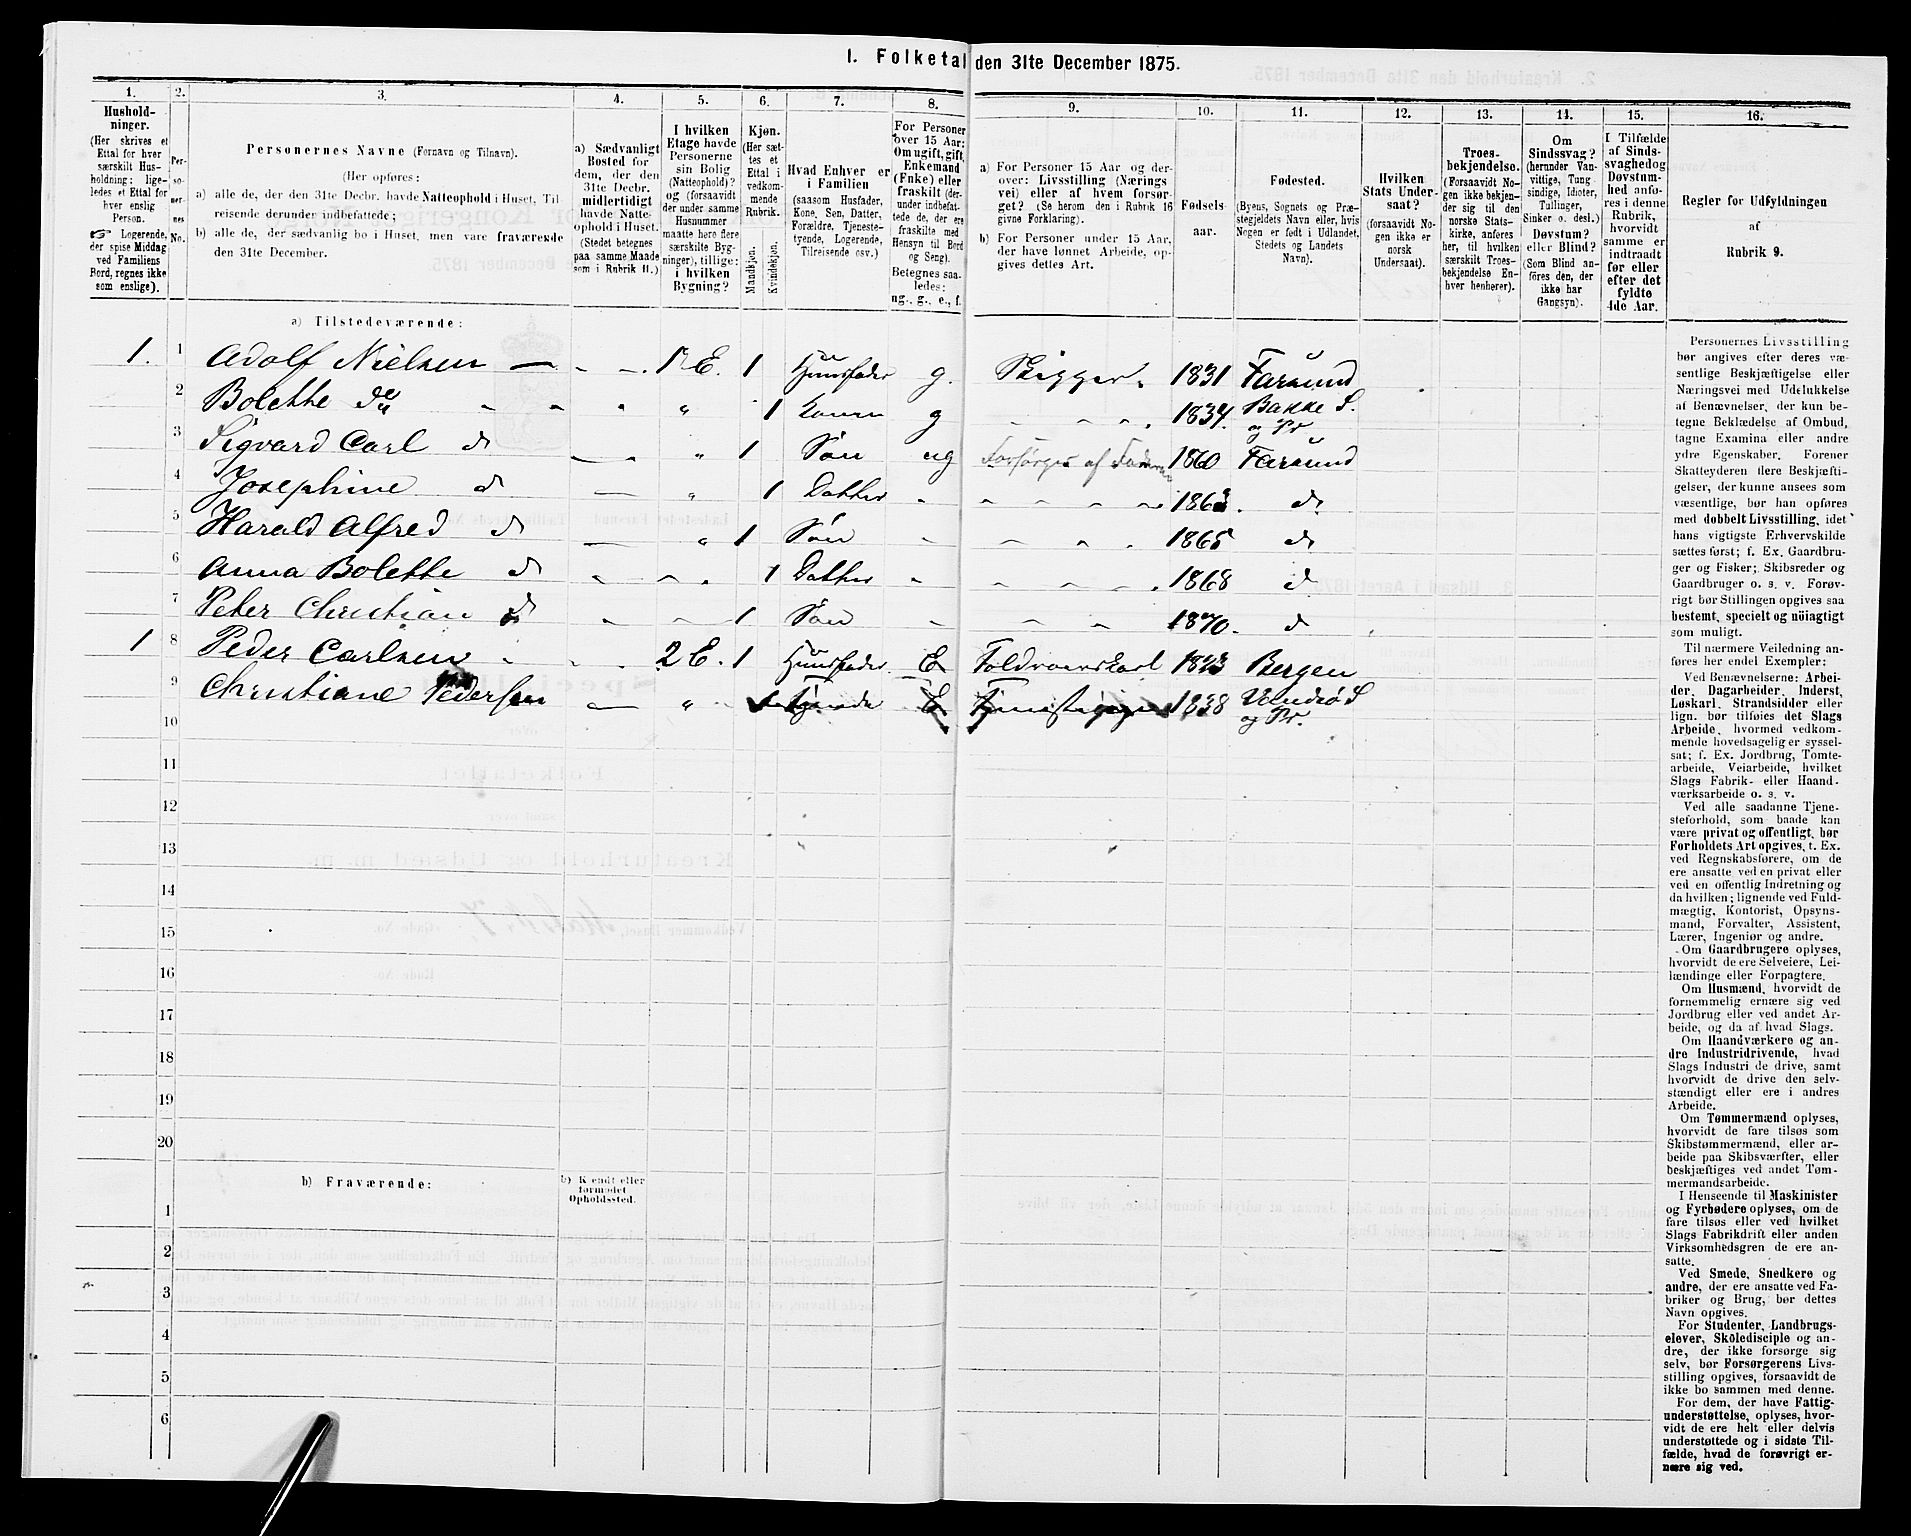 1. Folketal den 31te December 1875.
1. 2. 3. 4. 5. 6. 7. 8. 9. 10. 11. 12. 13. 14. 15. 16.
Hushold-
ninger.
(Her skrives et
Ettal for hver
særskilt Hus-
holdning; lige-
ledes et Ettal for
hver enslig
Person.
☞ Logerende,
der spise Middag
ved Familiens
Bord, regnes ikke
som enslige).
Per-
so-
ner-
nes
No.
Personernes Navne (Fornavn og Tilnavn).
(Her opføres:
a) alle de, der den 31te Decbr. havde Natteophold i Huset, Til
reisende derunder indbefattede;
b) alle de, der sædvanlig bo i Huset, men vare fraværende
den 31te December.
a) Sædvanligt
Bosted for
dem, der den
31te Decbr.
midlertidigt
havde Natte-
ophold i Huset.
(Stedet betegnes
paa samme Maade
som i Rubrik 11.)
I hvilken
Etage havde
Personerne
sin Bolig
(Natteophold)?
og (forsaavidt
der under samme
Husnummer
maatte høre flere
særskilte Byg-
ninger), tillige:
i hvilken
Bygning?
Kjøn.
(Her sæt-
tes et
Ettal i
vedkom-
mende
Rubrik.
Mandkjøn.
Kvindekjøn.
Hvad Enhver er
i Familien
(saasom Husfader,
Kone, Søn, Datter,
Forældre, Tjeneste-
tyende, Logerende,
Tilreisende osv.)
For Personer
over 15 Aar:
Om ugift, gift,
Enkemand
(Enke) eller
fraskilt (der-
under indbefat-
tede de, der ere
fraskilte med
Hensyn til Bord
og Seng).
Betegnes saa-
ledes:
ug., g., e., f.
a) For Personer 15 Aar og der-
over: Livsstilling (Nærings
vei) eller af hvem forsør-
get? (Se herom den i Rubrik 16
givne Forklaring).
b) For Personer under 15 Aar,
der have lønnet Arbeide, op-
gives dettes Art.
Fødsels
aar.
Fødested.
(Byens, Sognets og Præ-
stegjeldets Navn eller, hvis
Nogen er født i Udlandet,
Stedets og Landets
Navn).
Hvilken
Stats Under-
saat?
(forsaavidt No-
gen ikke er
norsk
Undersaat).
Troes-
bekjendelse.
(Forsaavidt No-
gen ikke bekjen-
der sig til den
norske Stats-
kirke, anføres
her, til hvilken
særskilt Troes-
bekjendelse En-
hver henhører).
Om
Sindssvag?
(herunder Van-
vittige, Tung
sindige, Idioter,
Tullinger,
Sinker o. desl.)
Døvstum?
eller Blind?
(Som Blind an-
føres den, der
ikke har
Gangsyn).
I Tilfælde
af Sinds-
svaghed og
Døvstum-
hed anfø-
res i denne
Rubrik,
hvorvidt
samme er
indtraadt
før eller
efter det
fyldte
4de Aar.
Regler for Udfyldningen
af
Rubrik 9.
a) Tilstedeværende:
1. 1 Adolf Nielsen 1 E. 1 Huusfader g. Skipper 1831 Farsund
2 Bolette do " 1 Konen g 1834 Bakke S. og Pr
3 Sigvard Carl d " 1 Søn ug Forsørges af Faderen 1860 Farsund
4 Josephine d " 1 Datter 1863 d
5 Harald Alfred d " 1 Søn 1865 d
6 Anna Bolette d 1 Datter 1868 d
7 Peter Christian d 1 Søn 1870 d
1 8 Peder Carlsen 2 E. 1 Huusfader E Toldroerskarl 1823 Bergen
9 Christiane Pedersen " 1 E 1838 S og Pr.
10
11
12
13
14
15
16
17
18
19
20
b) Fraværende:
b) Kjendt eller
formodet
Opholdssted.
1
2
3
4
5
6
Personernes Livsstilling
bør angives efter deres væ-
sentlige Beskjæftigelse eller
Næringsvei med Udelukkelse
af Benævnelser, der kun be-
tegne Beklædelse af Ombud,
tagne Examina eller andre
ydre Egenskaber. Forener
Skatteyderen flere Beskjæfti-
gelser, der kunne ansees som
væsentlige, bør han opføres
med dobbelt Livsstilling, idet
hans vigtigste Erhvervskilde
sættes først; f. Ex. Gaardbru-
ger og Fisker; Skibsreder og
Gaardbruger o. s. v. Forøv-
rigt bør Stillingen opgives saa
bestemt, specielt og nöiagtigt
som muligt.
Til nærmere Veiledning an-
føres her endel Exempler:
Ved Benævnelserne: Arbei-
der, Dagarbeider, Inderst,
Løskarl, Strandsidder eller
lign. bør tilføies det Slags
Arbeide, hvormed vedkom-
mende hovedsagelig er syssel-
sat; f. Ex. Jordbrug, Tomte-
arbeide, Veiarbeide, hvilket
Slags Fabrik- eller Haand-
værksarbeide o. s. v.
Ved alle saadanne Tjene-
steforhold, som baade kan
være privat og offentligt, bør
Forholdets Art opgives, f. Ex.
ved Regnskabsførere, om de
ere ansatte ved en privat eller
ved en offentlig Indretning og
da hvilken; lignende ved Fuld-
mægtig, Kontorist, Opsyns-
mand, Forvalter, Assistent,
Lærer, Ingeniør og andre.
Om Gaardbrugere oplyses,
hvorvidt de ere Selveiere, Lei-
lændinge eller Forpagtere.
Om Husmænd, hvorvidt de
fornemmelig ernære sig ved
Jordbrug eller ved andet Ar-
beide, og da af hvad Slags.
Om Haandværkere og an-
dre Industridrivende, hvad
Slags Industri de drive, samt
hvorvidt de drive den selv-
stændigt eller ere i andres
Arbeide.
Om Tømmermænd oplyses,
hvorvidt de fare tilsøs som
Skibstømmermænd, eller ar-
beide paa Skibsværfter, eller
beskjæftiges ved andet Tøm-
mermandsarbeide.
I Henseende til Maskinister
og Fyrbødere oplyses, om de
fare tilsøs eller ved hvilket
Slags Fabrikdrift eller anden
Virksomhedsgren de ere an-
satte.
Ved Smede, Snedkere og
andre, der ere ansatte ved Fa-
briker og Brug, bør dettes
Navn opgives.
For Studenter, Landbrugs-
elever, Skoledisciple og an-
dre, der ikke forsørge sig
selv, bør Forsørgerens Livs-
stilling opgives, forsaavidt de
ikke bo sammen med denne.
For dem, der have Fattig-
understøttelse, oplyses, hvor-
vidt de ere helt eller delvis
understøttede og i sidste Til-
fælde, hvad de forøvrigt er-
nære sig ved.